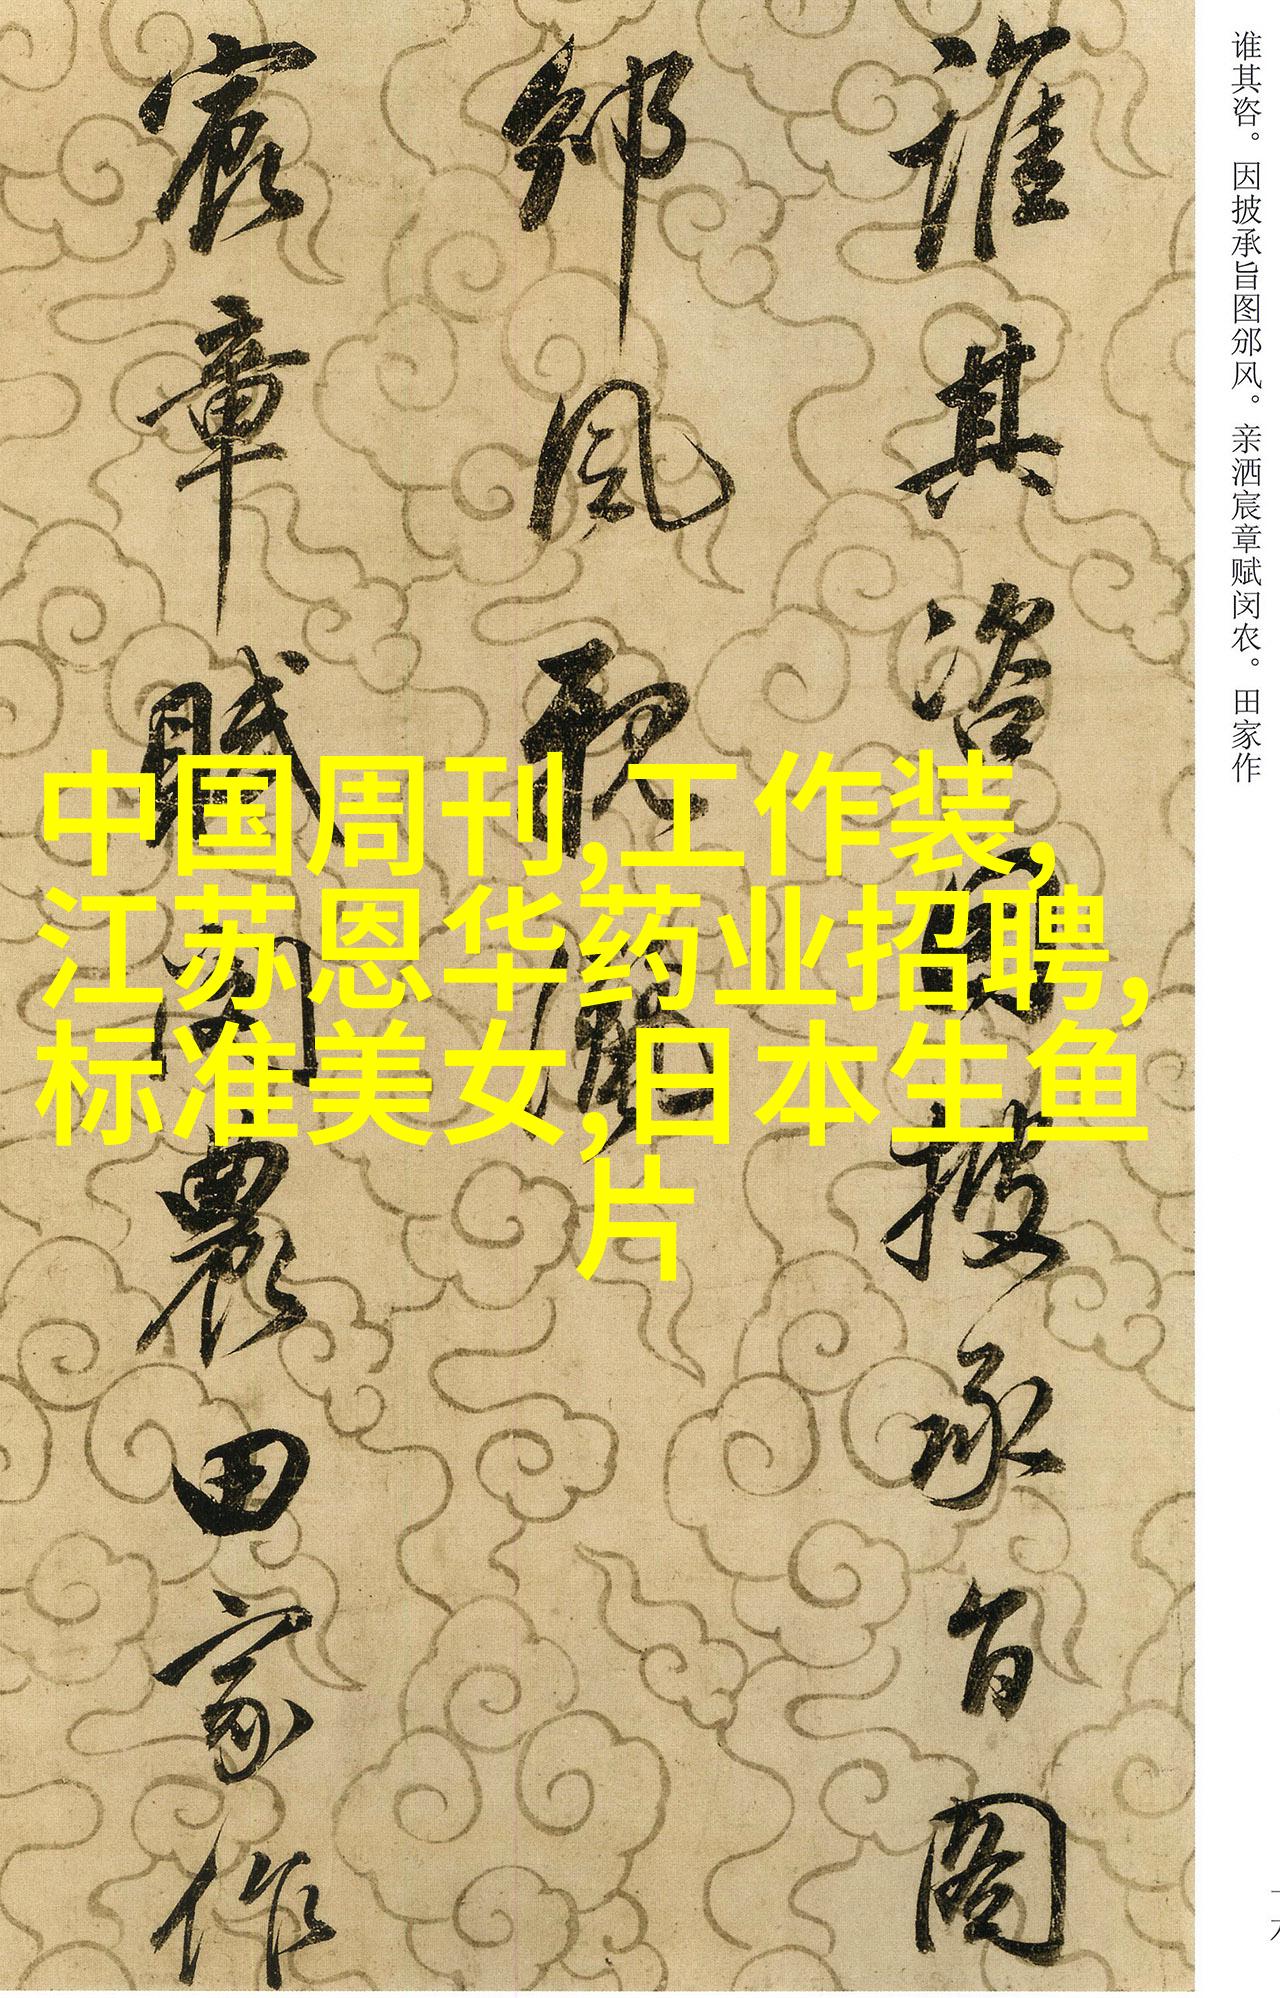 谁其咨。因披承旨图邠风。亲洒宸章赋闵农。田家作
誰其咨因披承旨圖
邠風親灑
宸章賦閔農田家作
中国周刊,工作装,
江苏恩华药业招聘,
标准美女,日本生鱼
片